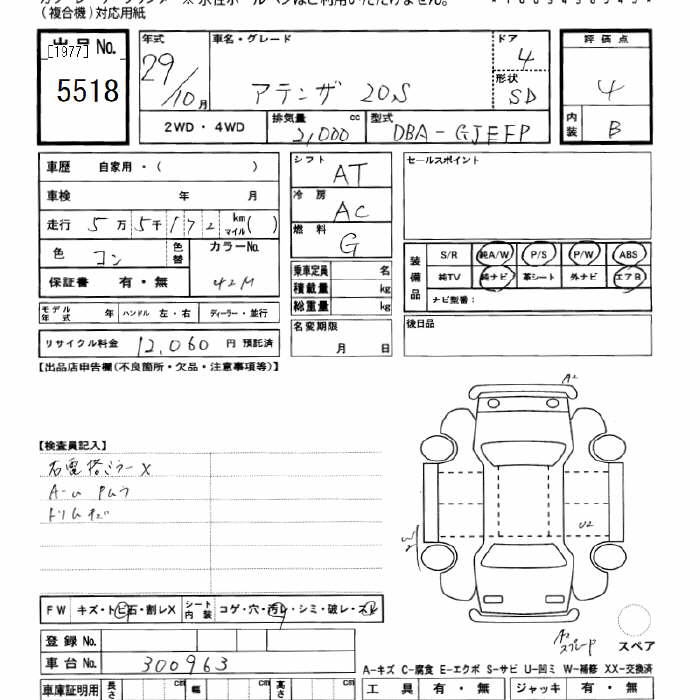 (複合機)対応用紙
出品No.
[1977]
5518
年式
29/10月
車名・グレード
アテンザ 20S
ドア
4
形状
SD
評価点
4
内装
B
2WD・4WD
排気量 cc
2,000
型式
DBA-GJEFP
車歴 自家用・( )
車検 年 月
走行 5万5千172 km マイル( )
色
コン
色替
カラーNo.
42M
保証書 有・無
シフト
AT
冷房
AC
燃料
G
乗車定員 名
積載量 kg
総重量 kg
名変期限
月 日
セールスポイント
装備品
S/R 純A/W P/S P/W ABS
純TV 純ナビ 革シート 外ナビ エアB
ナビ型番:
後日品
モデル年式 年 ハンドル 左・右 ディーラー・並行
リサイクル料金 12,060 円 預託済
【出品店申告欄(不良箇所・欠品・注意事項等)】
【検査員記入】
A2
U2
W2
A2
スプレード
スペア
FW キズ・トビ石・割レX シート内装 コゲ・穴・汚レ・シミ・破レ・スレ
登録No.
車台No. 300963
A-キズ C-腐食 E-エクボ S-サビ U-凹ミ W-補修 XX-交換済
車庫証明用 長さ cm 幅 cm 高さ cm
工具 有・無 ジャッキ 有・無